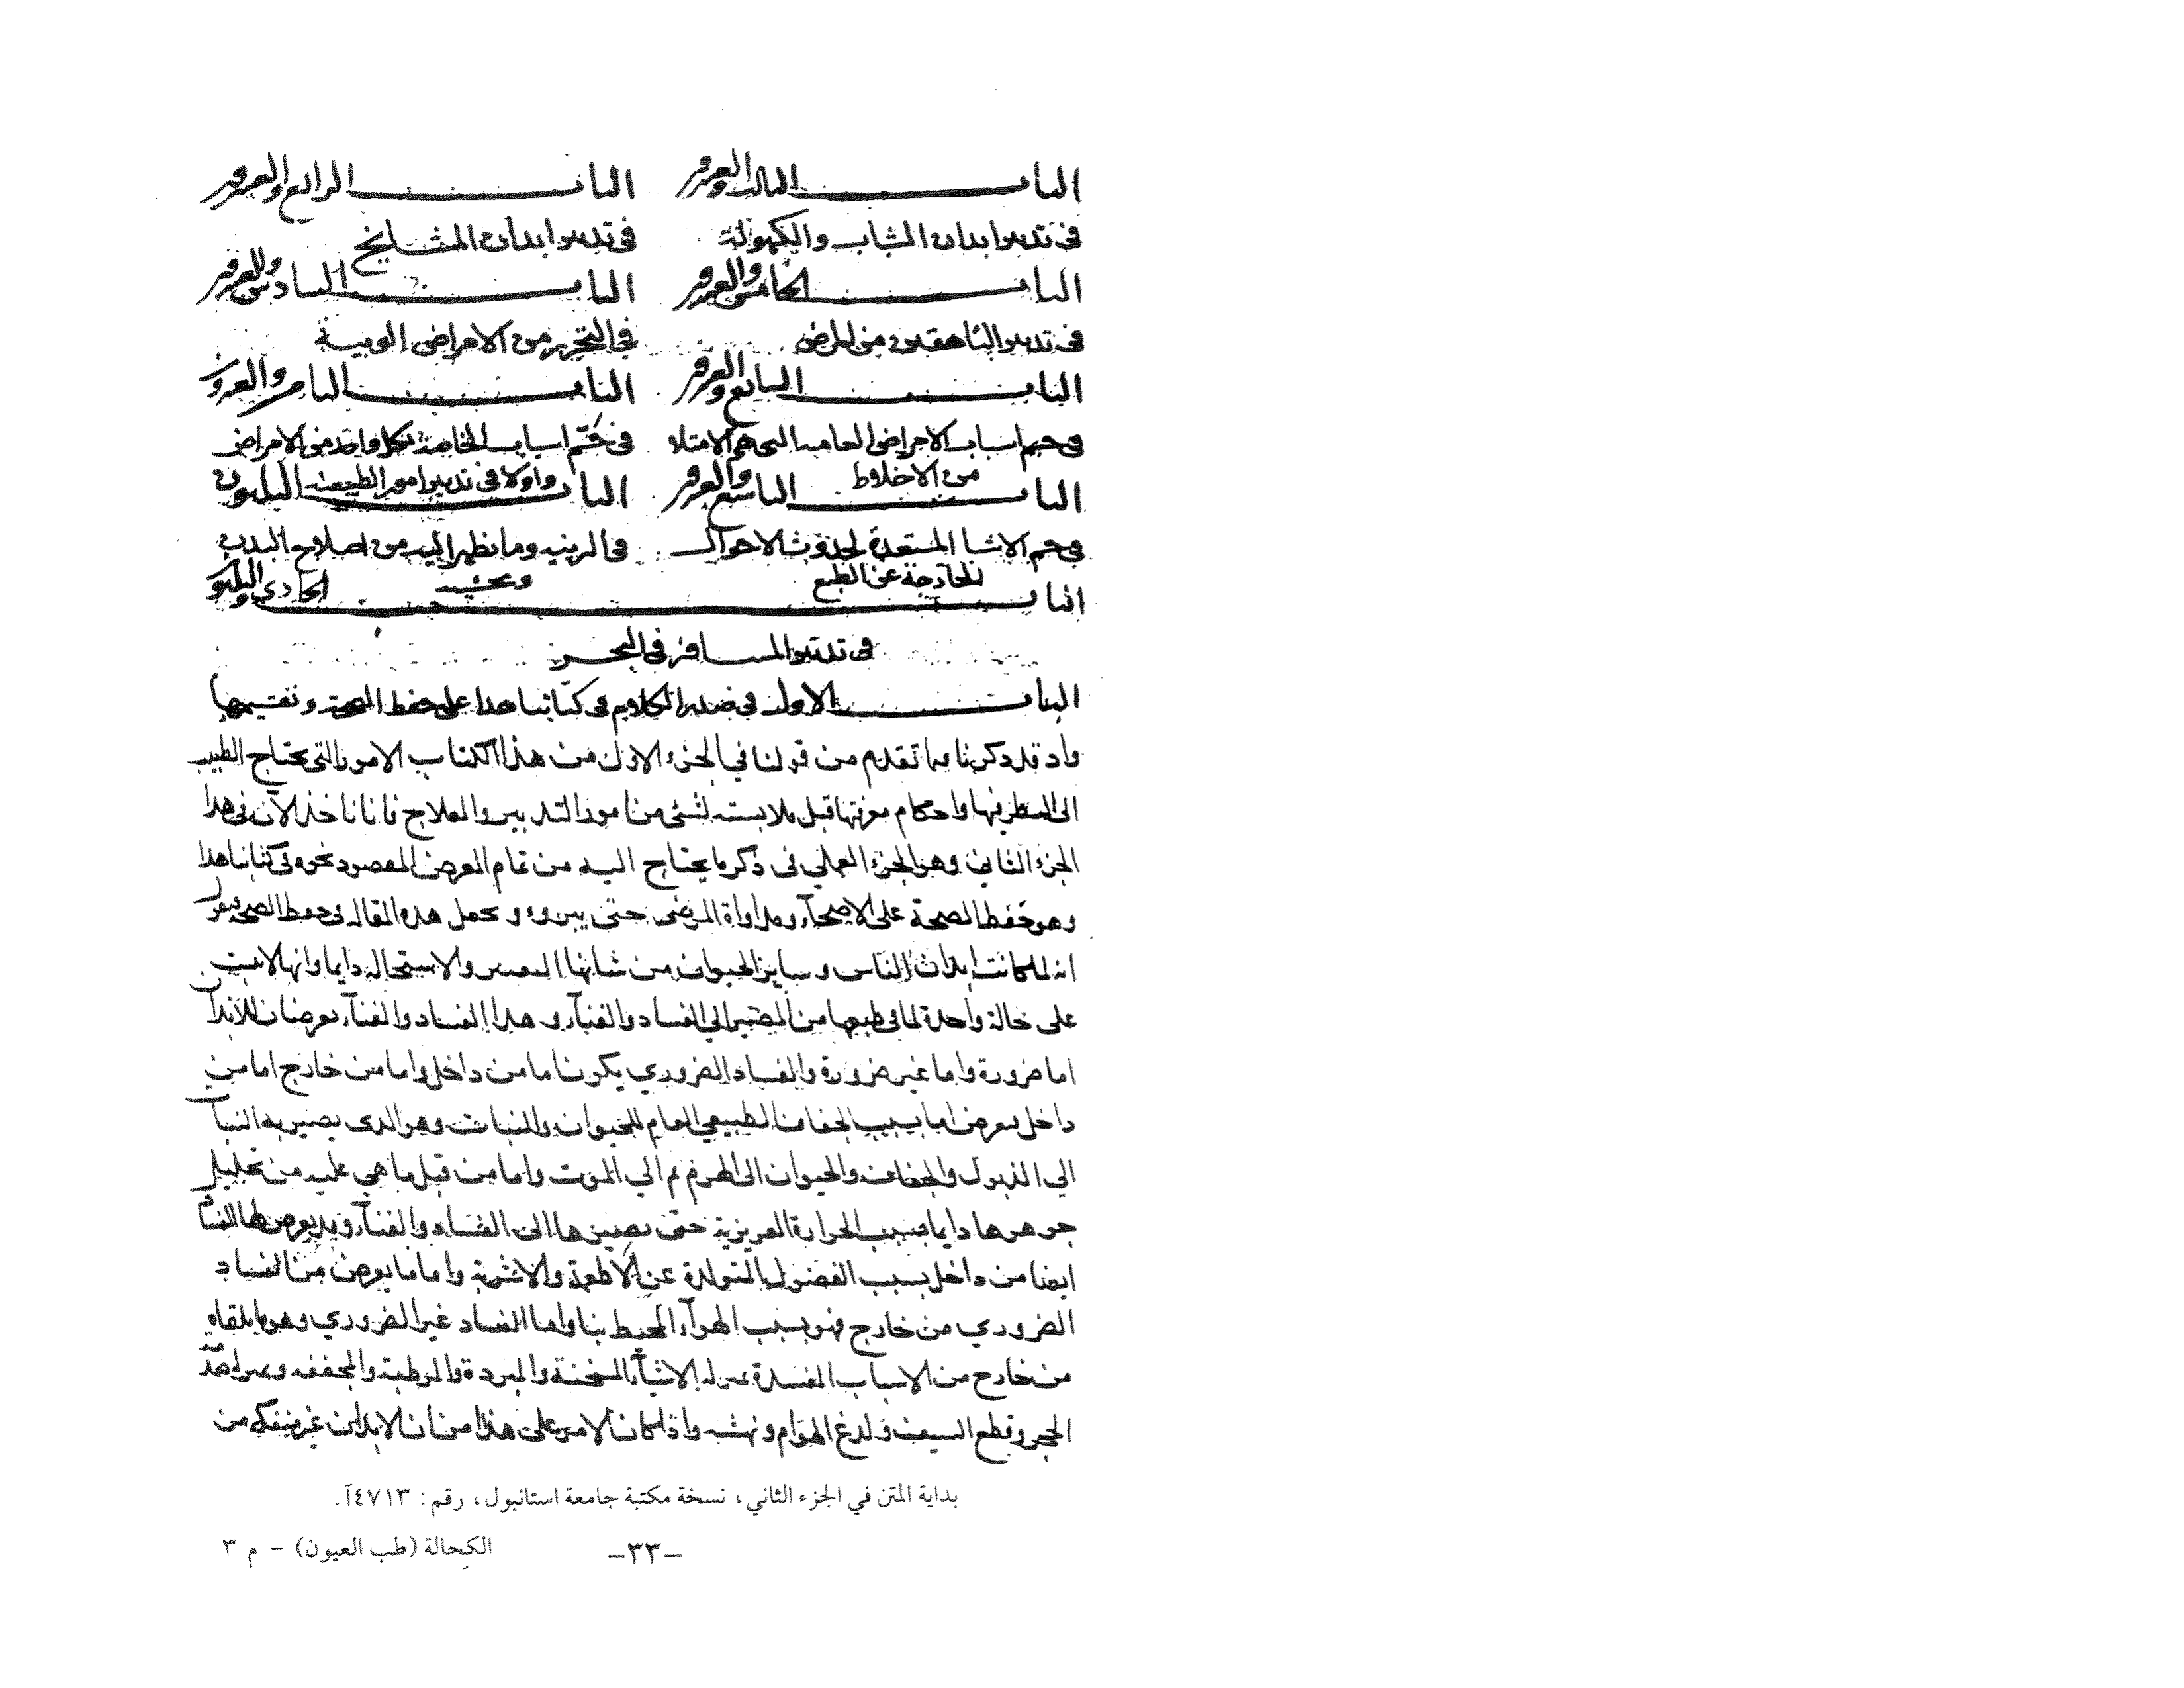 الباب الثالث والعشرون
في تدبير ابدان الشاب والكهولة
الباب الرابع والعشرون
في تدبير ابدان المشايخ
الباب الخامس والعشرون
في تدبير الناهقين من المرض
الباب السادس والعشرون
في التحرز من الامراض الوبيية
الباب السابع والعشرون
في حسم اسباب الامراض العامية التي هي الامتلاء
من الاخلاط
الباب الثامن والعشرون
في حسم اسباب الخاصة بكل واحد من الامراض
واولا في تدبير امور الطبيعة
الباب التاسع والعشرون
في حسم الاشيا المستعدة لحدوث الاحوال
الخارجة عن الطبع
الباب الثلثون
في الزينة وما نظهر اليد من اصلاح البدن
وتحسينه
الباب الحادي والثلثون
في تدبير المسافر في البحر
الباب الاول في صدر الكلام في كتابنا هذا على حفظ الصحة وتقسيمها
واد قد ذكرنا فيما تقدم من قولنا في الجزء الاول من هذا الكتاب الامور التي يحتاج الطبيب
الى النظر فيها واحكام معرفتها قبل ملابسته لشئ من امور التدبير والعلاج فانا ناخذ الآن في هذا
الجزء الثاني وهو الجزء العملي في ذكر ما يحتاج اليه من تمام الغرض المقصود نحوه في كتابنا هذا
وهو حفظ الصحة على الاصحآء ومداواة المرضى حتى يبروء و نجعل هذه المقالة في حفظ الصحة فنقول
انه لما كانت ابدان الناس وساير الحيوان من شانها التغيير والاستحالة دايما وانها لا تثبت
على حالة واحدة لما في طبعها من المصير الى الفساد والفنآء وهذا الفساد والفنآء يعرضان للابدان
اما ضرورة واما غير ضرورة والفساد الضروري يكون اما من داخل واما من خارج اما من
داخل يعرض اما بسبب الجفاف الطبيعي العام للحيوان والنبات وهو الذي يصير به النبات
الى الذبول والجفاف والحيوان الى الهرم ثم الى الموت واما من قبل ما هي عليه من تحليل
جوهرها دايما بسبب الحرارة الغريزية حتى يصيرها الى الفساد والفنآء وقد يعرض لها الفساد
ايضا من داخل بسبب الفضول المتولدة عن الاطعمة والاشربة واما ما يعرض من الفساد
الضروري من خارج فهو بسبب الهوآء المحيط بنا واما الفساد غير الضروري وهو ما يلقاه
من خارج من الاسباب المفسدة بمنزلة الاشيآء المسخنة والمبردة والمرطبة والمجففة وبمنزلة صدمة
الحجر وقطع السيف ولدغ الهوام ونهشه واذا كان الامر على هذا من ان الابدان غير منفكة من
بداية المتن في الجزء الثاني، نسخة مكتبة جامعة استانبول، رقم: ٤٧١٣آ.
-٣٣-
الكِحالة (طب العيون) - م ٣